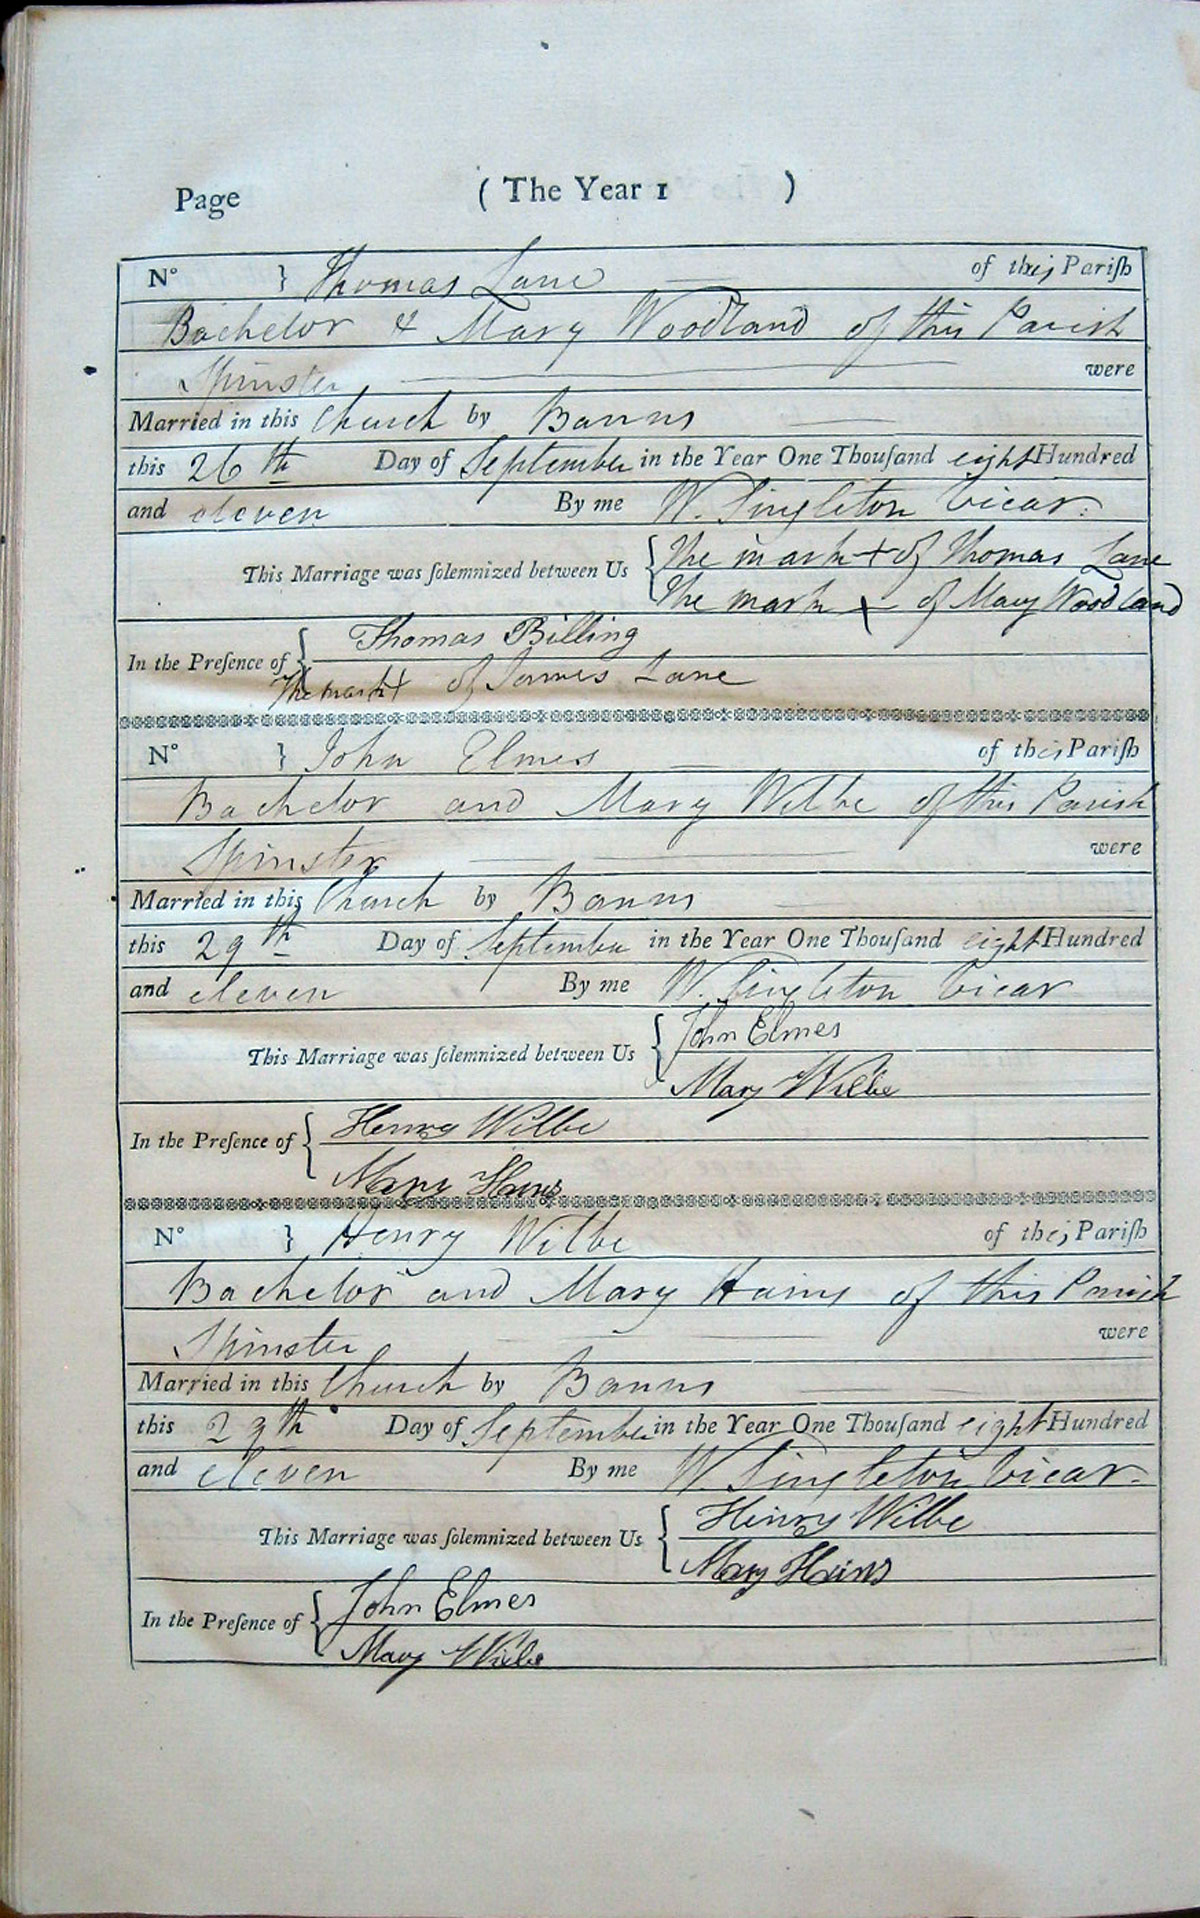 Page ( The Year 1 )
N° } Thomas Lane of this Pariſh
Bachelor & Mary Woodland of this Parish
Spinster were
Married in this Church by Banns
this 26th Day of September in the Year One Thouſand eight Hundred
and eleven By me W. Singleton Vicar.
This Marriage was ſolemnized between Us { The mark + of Thomas Lane
The mark + of Mary Woodland
In the Preſence of { Thomas Billing
The mark + of James Lane
N° } John Elmes of this Pariſh
Bachelor and Mary Wilbe of this Parish
Spinster were
Married in this Church by Banns
this 29th Day of September in the Year One Thouſand eight Hundred
and eleven By me W. Singleton Vicar
This Marriage was ſolemnized between Us { John Elmes
Mary Wilbe
In the Preſence of { Henry Wilbe
Mary Hains
N° } Henry Wilbe of this Pariſh
Bachelor and Mary Hains of this Parish
Spinster were
Married in this Church by Banns
this 29th Day of September in the Year One Thouſand eight Hundred
and eleven By me W. Singleton Vicar.
This Marriage was ſolemnized between Us { Henry Wilbe
Mary Hains
In the Preſence of { John Elmes
Mary Wilbe